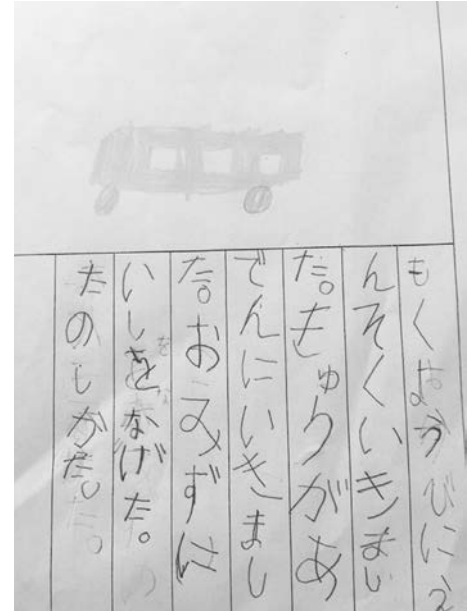 もくようびにえ
んそくいきまし
た。きゅりがあ
でんにいきまし
た。おみずに
いしをなげた。
たのしがた。